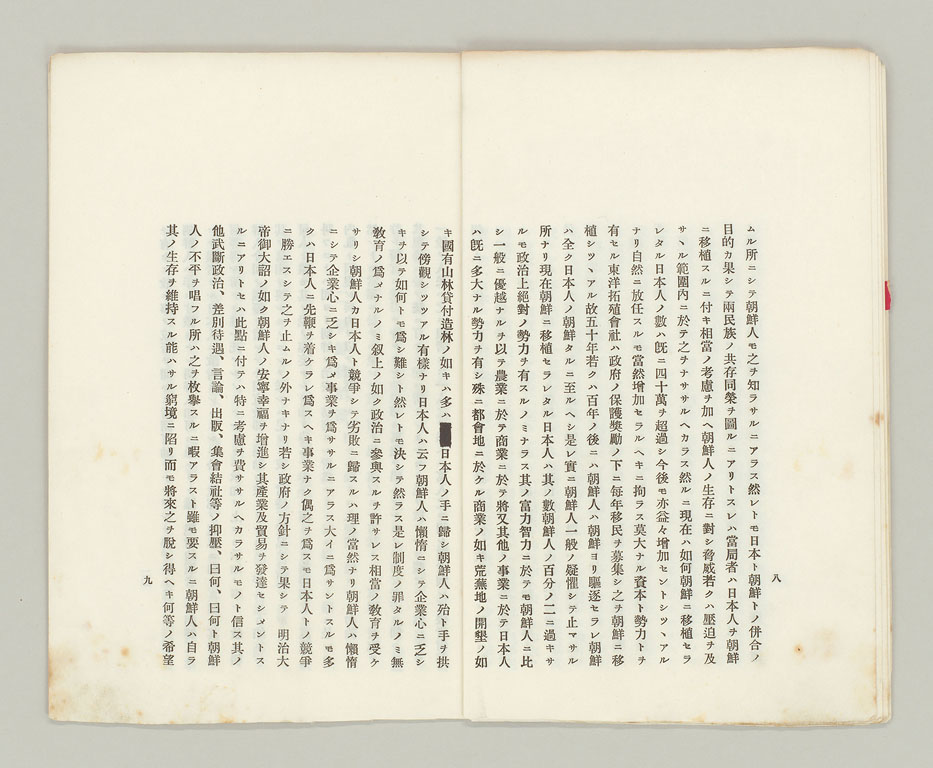 八
ムル所ニシテ朝鮮人モ之ヲ知ラサルニアラス然レトモ日本ト朝鮮トノ併合ノ
目的カ果シテ兩民族ノ共存同榮ヲ圖ルニアリトスレハ當局者ハ日本人ヲ朝鮮
ニ移植スルニ付キ相當ノ考慮ヲ加ヘ朝鮮人ノ生存ニ對シ脅威若クハ壓迫ヲ及
サヽル範圍內ニ於テ之ヲナサヽルヘカラス然ルニ現在ハ如何朝鮮ニ移植セラ
レタル日本人ノ數ハ既ニ四十萬ヲ超過シ今後モ亦益々增加セントシツヽアル
ナリ自然ニ放任スルモ當然增加セラルヘキニ拘ラス莫大ナル資本ト勢力トヲ
有セル東洋拓殖會社ハ政府ノ保護奬勵ノ下ニ每年移民ヲ募集シ之ヲ朝鮮ニ移
植シツヽアル故五十年若クハ百年ノ後ニハ朝鮮人ハ朝鮮ヨリ驅逐セラレ朝鮮
ハ全ク日本人ノ朝鮮タルニ至ルヘシ是レ實ニ朝鮮人一般ノ疑懼シテ止マサル
所ナリ現在朝鮮ニ移植セラレタル日本人ハ其ノ數朝鮮人ノ百分ノ二ニ過キサ
ルモ政治上絕對ノ勢力ヲ有スルノミナラス其ノ富力智力ニ於テモ朝鮮人ニ比
シ一般ニ優越ナルヲ以テ農業ニ於テ商業ニ於テ將又其他ノ事業ニ於テ日本人
ハ既ニ多大ナル勢力ヲ有シ殊ニ都會地ニ於ケル商業ノ如キ荒蕪地ノ開墾ノ如
キ國有山林貸付造林ノ如キハ多ハ日本人ノ手ニ歸シ朝鮮人ハ殆ト手ヲ拱
シテ傍觀シツツアル有樣ナリ日本人ハ云フ朝鮮人ハ懶惰ニシテ企業心ニ乏シ
キヲ以テ如何トモ爲シ難シト然レトモ決シテ然ラス是レ制度ノ罪タルノミ無
敎育ノ爲メナルノミ叙上ノ如ク政治ニ參與スルヲ許サレス相當ノ敎育ヲ受ケ
サリシ朝鮮人カ日本人ト競爭シテ劣敗ニ歸スルハ理ノ當然ナリ朝鮮人ハ懶惰
ニシテ企業心ニ乏シキ爲メ事業ヲ爲ササルニアラス大イニ爲サントスルモ多
クハ日本人ニ先鞭ヲ着ケラレ爲スヘキ事業ナク偶之ヲ爲スモ日本人トノ競爭
ニ勝エスシテ之ヲ止ムルノ外ナキナリ若シ政府ノ方針ニシテ果シテ　明治大
帝御大詔ノ如ク朝鮮人ノ安寧幸福ヲ增進シ其產業及貿易ヲ發達セシメントス
ルニアリトセハ此點ニ付テハ特ニ考慮ヲ費ササルヘカラサルモノト信ス其ノ
他武斷政治、差別待遇、言論、出版、集會結社等ノ抑壓、曰何、曰何ト朝鮮
人ノ不平ヲ唱フル所ハ之ヲ枚擧スルニ暇アラスト雖モ要スルニ朝鮮人ハ自ラ
其ノ生存ヲ維持スル能ハサル窮境ニ陷リ而モ將來之ヲ脫シ得ヘキ何等ノ希望
九